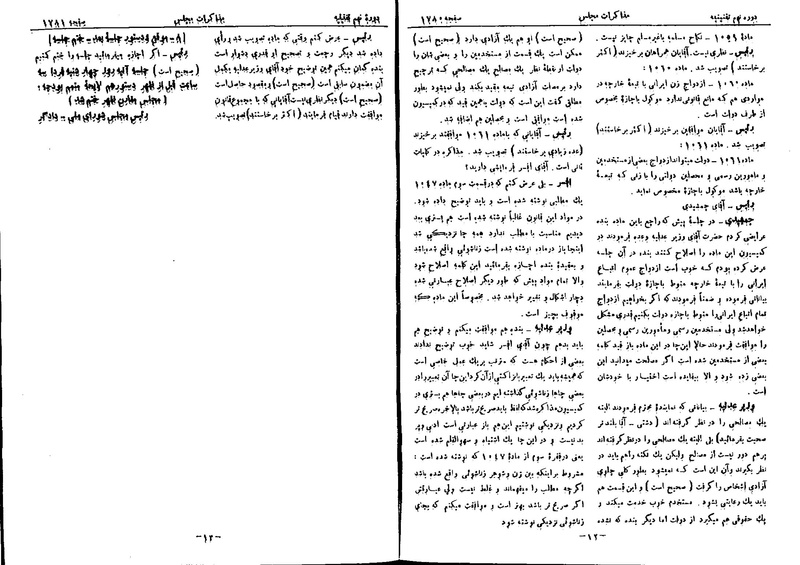 دوره نهم تقنینیه مذاکرات مجلس صفحه ۱۷۸۰
ماده ۱۰۵۹ - نکاح مسلمه باغیرمسلم جایز نیست.
رئیس - نظری نیست. آقایان همراهان برخیزند (اکثر
برخاستند) تصویب شد. ماده ۱۰۶۰:
ماده ۱۰۶۰ - ازدواج زن ایرانی با تبعه خارجه در
مواردی هم که مانع قانونی ندارد موکول باجازه مخصوص
از طرف دولت است.
رئیس - آقایان موافقین برخیزند (اکثر برخاستند)
تصویب شد. ماده ۱۰۶۱:
ماده ۱۰۶۱ - دولت میتواند ازدواج بعضی از مستخدمین
و مامورین رسمی و محصلین دولتی را با زنی که تبعهٔ
خارجه باشد موکول باجازه مخصوص نماید.
رئیس - آقای جمشیدی
جمشیدی - در جلسهٔ پیش که راجع باین ماده بنده
عرایضی کردم حضرت آقای وزیر عدلیه وعده فرمودند در
کمیسیون این ماده را اصلاح کنند بنده در آن جلسه
عرض کرده بودم که خوب است ازدواج عموم اتباع
ایرانی را با تبعهٔ خارجه منوط باجازه دولت بفرمایند
بیاناتی فرموده و ضمناً فرمودند که اگر بخواهیم ازدواج
تمام اتباع ایرانی را منوط باجازه دولت بکنیم قدری مشکل
خواهد شد ولی مستخدمین رسمی و مأمورین رسمی و محصلین
را موافقت فرمودند حالا این جا در این ماده باز قید کلمه
بعضی از مستخدمین شده است اگر مصلحت میدانید این
بعضی زده شود و الا بیفایده است اختیار با خودشان
است.
وزیر عدلیه - بیاناتی که نمایندهٔ محترم فرمودند البته
یک مصالحی را در نظر گرفته اند (دشتی - آقا بلندتر
صحبت بفرمائید) بلی البته یک مصالحی را در نظر گرفته اند
پر هم دور نیست از مصالح ولیکن یک نکته را هم باید در
نظر بگیرند و آن این است که نمیشود بطور کلی جلوی
آزادی اشخاص را گرفت (صحیح است) و این قسمت هم
باید یک رعایتی بشود. مستخدم خوب خدمت میکند و
یک حقوقی هم میگیرد از دولت اما دیگر بنده که نشده
-۱۲-
(صحیح است) او هم یک آزادی دارد (صحیح است)
ممکن است یک قسمت از مستخدمین را و بعضی شان را
دولت از نقطهٔ نظر یک مصالح یک مصالحی که ترجیح
دارد بر مصلحت آزادی تبعه مقید بکند ولی نمیشود بطور
مطلق گفت این است که دولت بهمین قید که در کمیسیون
شده است موافق است و محصلین هم اضافه شد.
رئیس - آقایانی که باماده ۱۰۶۱ موافقند برخیزند
(عده زیادی برخاستند) تصویب شد. مذاکره در کلیات
ثانی است. آقای افسر فرمایشی دارید؟
افسر - بلی عرض کنم که در قسمت سوم ماده ۱۰۴۷
یک مطالبی نوشته شده است و باید توضیح داده شود.
در مواد این قانون غالباً نوشته شده است هم بستری بعد
دیدیم مناسبت با مطلب ندارد همه جا نزدیکی شد
اینجا باز در ماده نوشته شده است زناشوئی واقع شده باشد
و بعقیدهٔ بنده اجازه بفرمائید این کلمه اصلاح شود
والا تمام مواد پیش که طور دیگر اصلاح بعبارتی شده
دچار اشکال و تغییر خواهد شد. مخصوصاً این ماده که
موقوف بچیز است.
وزیر عدلیه - بنده هم موافقت میکنم و توضیح هم
باید بدهم چون آقای افسر شاید خوب توضیح ندادند
بعضی از احکام هست که مترتب بر یک عملی خاصی است
که همیشه باید یک تعبیر بازاکتی از آن کرد این جا آن تعبیر را در
بعضی جاها زناشوئی گذاشته ایم در بعضی جاها هم بستری در
کمیسیون مذاکره شد که لفظ باید صریح تر باشد بالاخره صریح تر
کردیم و نزدیکی نوشتیم این هم باز عبارتی است ادبی و پر
بد نیست و در این جا یک اشتباه و سهوالقلم شده است
یعنی در فقرهٔ سوم از مادهٔ ۱۰۴۷ که نوشته شده است:
مشروط بر اینکه بین زن و شوهر زناشوئی واقع شده باشد
اگرچه مطلب را میفهماند و غلط نیست ولی عبارتش
اگر صریح تر باشد بهتر است و موافقت میکنم که بجای
زناشوئی نزدیکی نوشته شود
دوره نهم تقنینیه مذاکرات مجلس صفحه ۱۷۸۱
رئیس - عرض کنم وقتی که ماده تصویب شد و رأی
داده شد دیگر رجعت و تصحیح او قدری دشوار است
بنده گمان میکنم همین توضیح خود آقای وزیر عدلیه بکمیل
آن مضمون سابق است (صحیح است) و مقصود حاصل است
(صحیح است) دیگر نظری نیست آقایانی که با مجموع قانون
موافقت دارند قیام فرمایند. (اکثر برخاستند) تصویب شد.
[۸ - موقع و دستور جلسه بعد - ختم جلسه]
رئیس - اگر اجازه میفرمائید جلسه را ختم کنیم
(صحیح است) جلسه آتیه روز چهارشنبه
(مجلس مقارن ظهر ختم شد)
رئیس مجلس شورای ملی - دادگر
-۱۳-